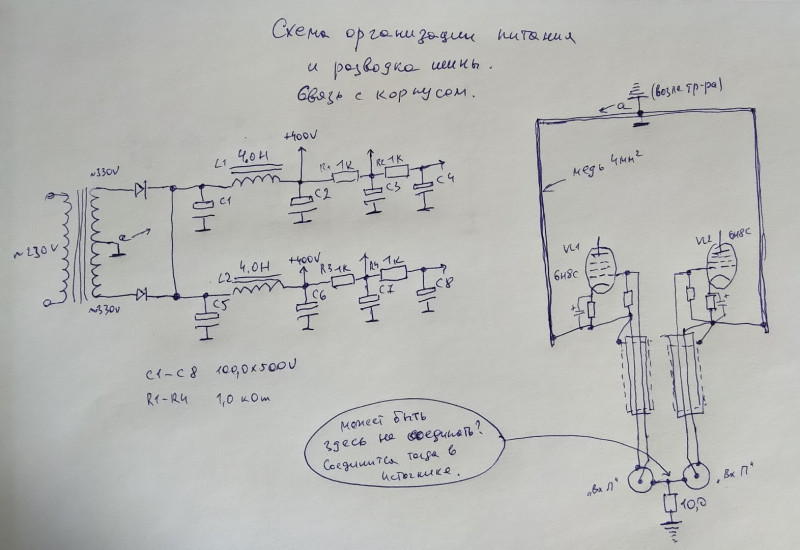 Схема организации питания
и разводка шины.
Связь с корпусом.
~330V
L1
4.0H
+400V
R1 1К
R2 1К
C1
C2
C3
C4
~230V
a
L2
4.0H
+400V
R3 1К
R4 1К
C5
C6
C7
C8
~330V
C1-C8 100,0x500V
R1-R4 1,0 кОт
a
(возле тр-ра)
медь 4мм²
VL1
6Н8С
VL2
6Н8С
может быть
здесь не соединать?
Соединится тогда в
источнике.
"Вх Л"
"Вх П"
10,0